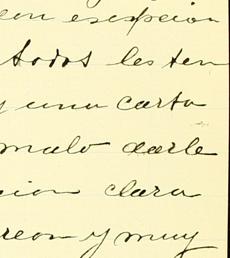 con esepcion
todos les ten
y una carta
malo darle
cion clara
reon y muy